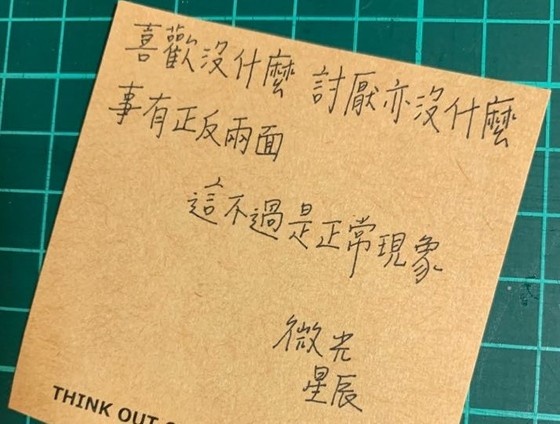 喜歡沒什麼 討厭亦沒什麼
事有正反兩面
這不過是正常現象
微光
星辰
THINK OUT